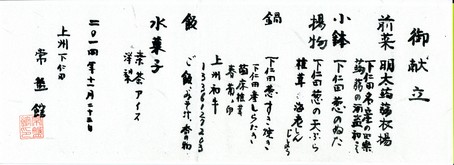 御献立
前菜 明太蒟蒻牧場
下仁田名産の三楽
蒟蒻の酒盗和え
小鉢 下仁田葱のぬた
揚物 下仁田葱の天ぷら
椎茸 海老しんじょう
鍋 下仁田葱すき焼き
下仁田産しらたき
菌床椎茸
春菊 卵
上州和牛
1336129265
飯 ご飯 みそ汁 香の物
水菓子 楽茶アイス
洋梨
二〇一四年十一月二十三日
上州下仁田
常盤館